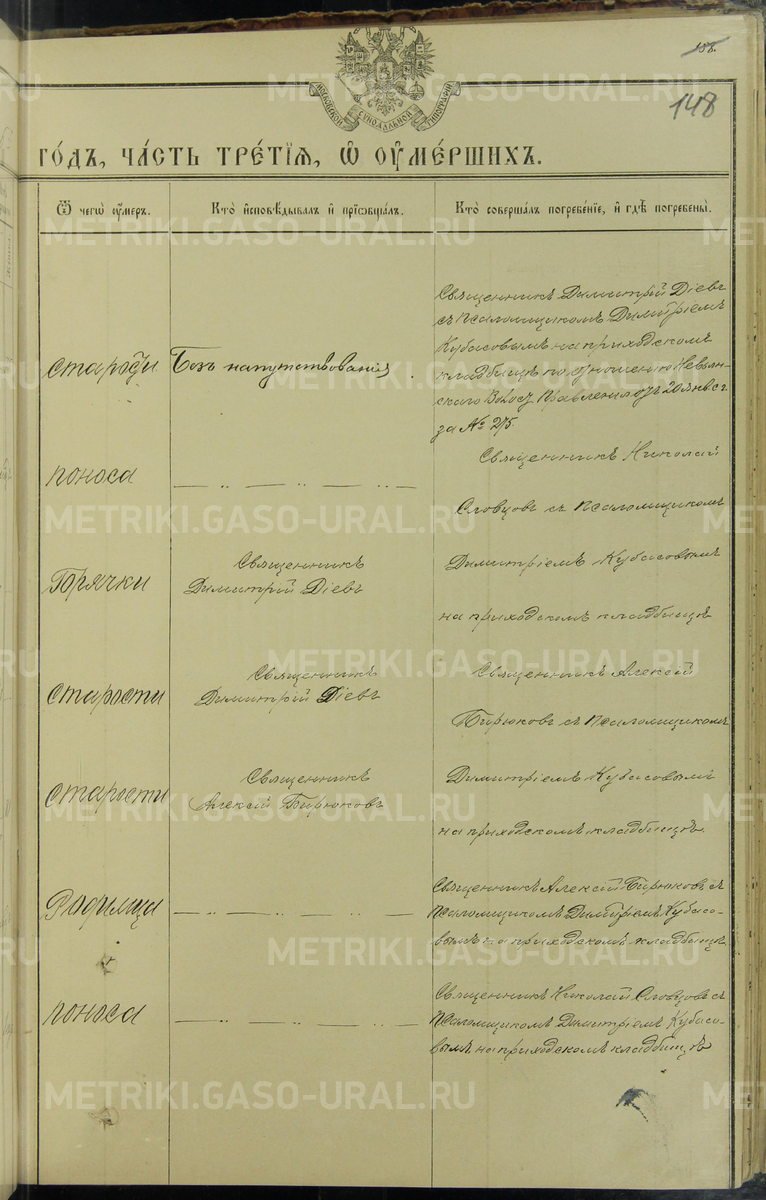 158.
148
МОСКОВСКОЙ СѴНОДАЛЬНОЙ ТИПОГРАФІИ
ГО́ДЪ, ЧА́СТЬ ТРЕ́ТІЯ, Ѡ҆ ОУ҆МЕ́РШИХЪ.
Ѿ чегѡ̀ оу҆́меръ.
Кто̀ и҆сповѣ́дывалъ и҆ прїѡбща́лъ.
Кто̀ соверша́лъ погребе́нїе, и҆ гдѣ̀ погребены̀.
Священникъ Димитрій Діевъ
съ Псаломщикомъ Димитріемъ
Кубасовымъ на приходскомъ
кладбищѣ по отношенію Невьян-
скаго Волос. Правленія отъ 20 янв. с.г.
за № 275.
старости
Безъ напутствованія
поноса
— „ — „ — „ —
Священникъ Николай
Словцовъ съ Псаломщикомъ
Димитріемъ Кубасовымъ
на приходскомъ кладбищѣ
Горячки
Священникъ
Димитрій Діевъ
старости
Священникъ
Димитрій Діевъ
Священникъ Алексій
Бирюковъ съ Псаломщикомъ
Димитріемъ Кубасовымъ
на приходскомъ кладбищѣ.
старости
Священникъ
Алексій Бирюковъ
Родимца
— „ — „ — „ —
Священникъ Алексій Бирюковъ съ
Псаломщикомъ Димитріемъ Кубасо-
вымъ на приходскомъ кладбищѣ
поноса
— „ — „ — „ —
Священникъ Николай Словцовъ съ
Псаломщикомъ Димитріемъ Кубасо-
вымъ на приходскомъ кладбищѣ
METRIKI.GASO-URAL.RU